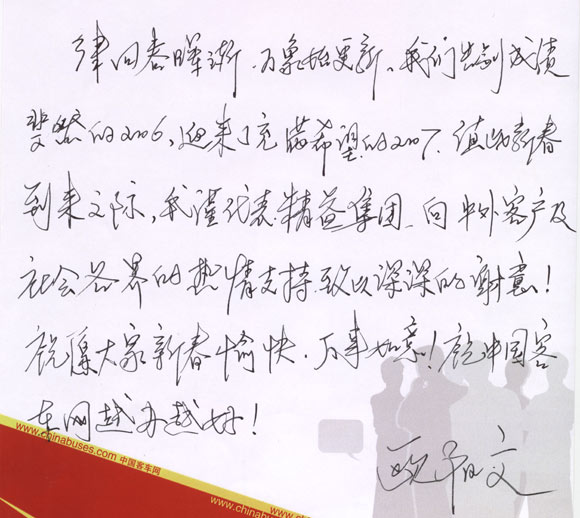 律回春晖渐,万象始更新,我们告别成绩
斐然的2006,迎来了充满希望的2007.值此新春
到来之际,我谨代表精益集团 向中外客户及
社会各界的热情支持致以深深的谢意!
祝愿大家新春愉快,万事如意!祝中国客
车网越办越好!
www.chinabuses.com 中国客车网
www.chinabuses.com